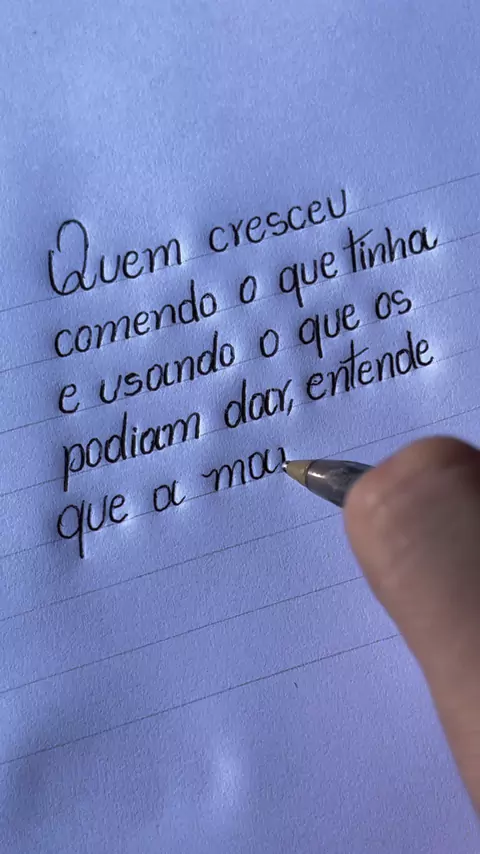 Quem cresceu
comendo o que tinha
e usando o que os
podiam dar, entende
que a mai